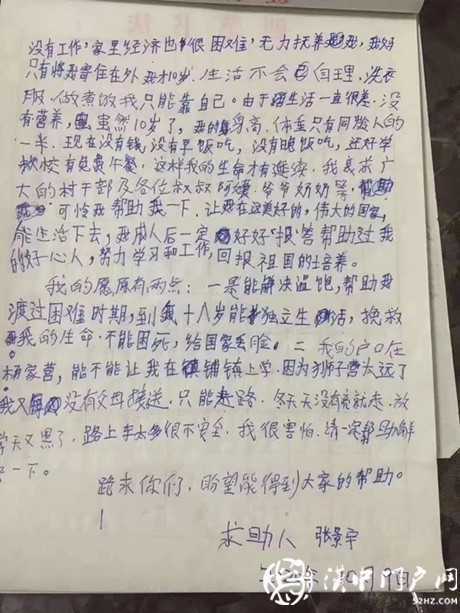 没有工作,家里经济也很困难,无力抚养我,我妈
只有将我寄住在外,我才10岁,生活不会自理,洗衣
服、做煮饭我只能靠自己。由于生活一直很差,没
有营养,虽然10岁了,我的身高、体重只有同龄人的
一半,现在没有钱,没有早饭吃,没有晚饭吃,还好学
校有免费午餐,这样我的生命才有延续,我恳求广
大的村干部及各位叔叔阿姨、爷爷奶奶等
可怜我帮助我一下,让我在这美好的,伟大的国家
能生活下去,我成人后一定好好报答帮助过我
的好心人,努力学习和工作,回报祖国的培养。
我的愿原有两点:一是能解决温饱,帮助我
渡过困难时期,到我十八岁能独立生活,挽救
我的生命,不能困死,给国家丢脸。二我的户口在
杨家营,能不能让我在镇铺镇上学,因为狮子营太远了
我又没有父母接送,只能走路,冬天天没有亮就走,放
学天又黑了,路上车太多很不安全,我很害怕,请一定帮助解
一下。
跪求你们,盼望能得到大家的帮助。
求助人 张景宇
汉中门户网
92HZ.COM